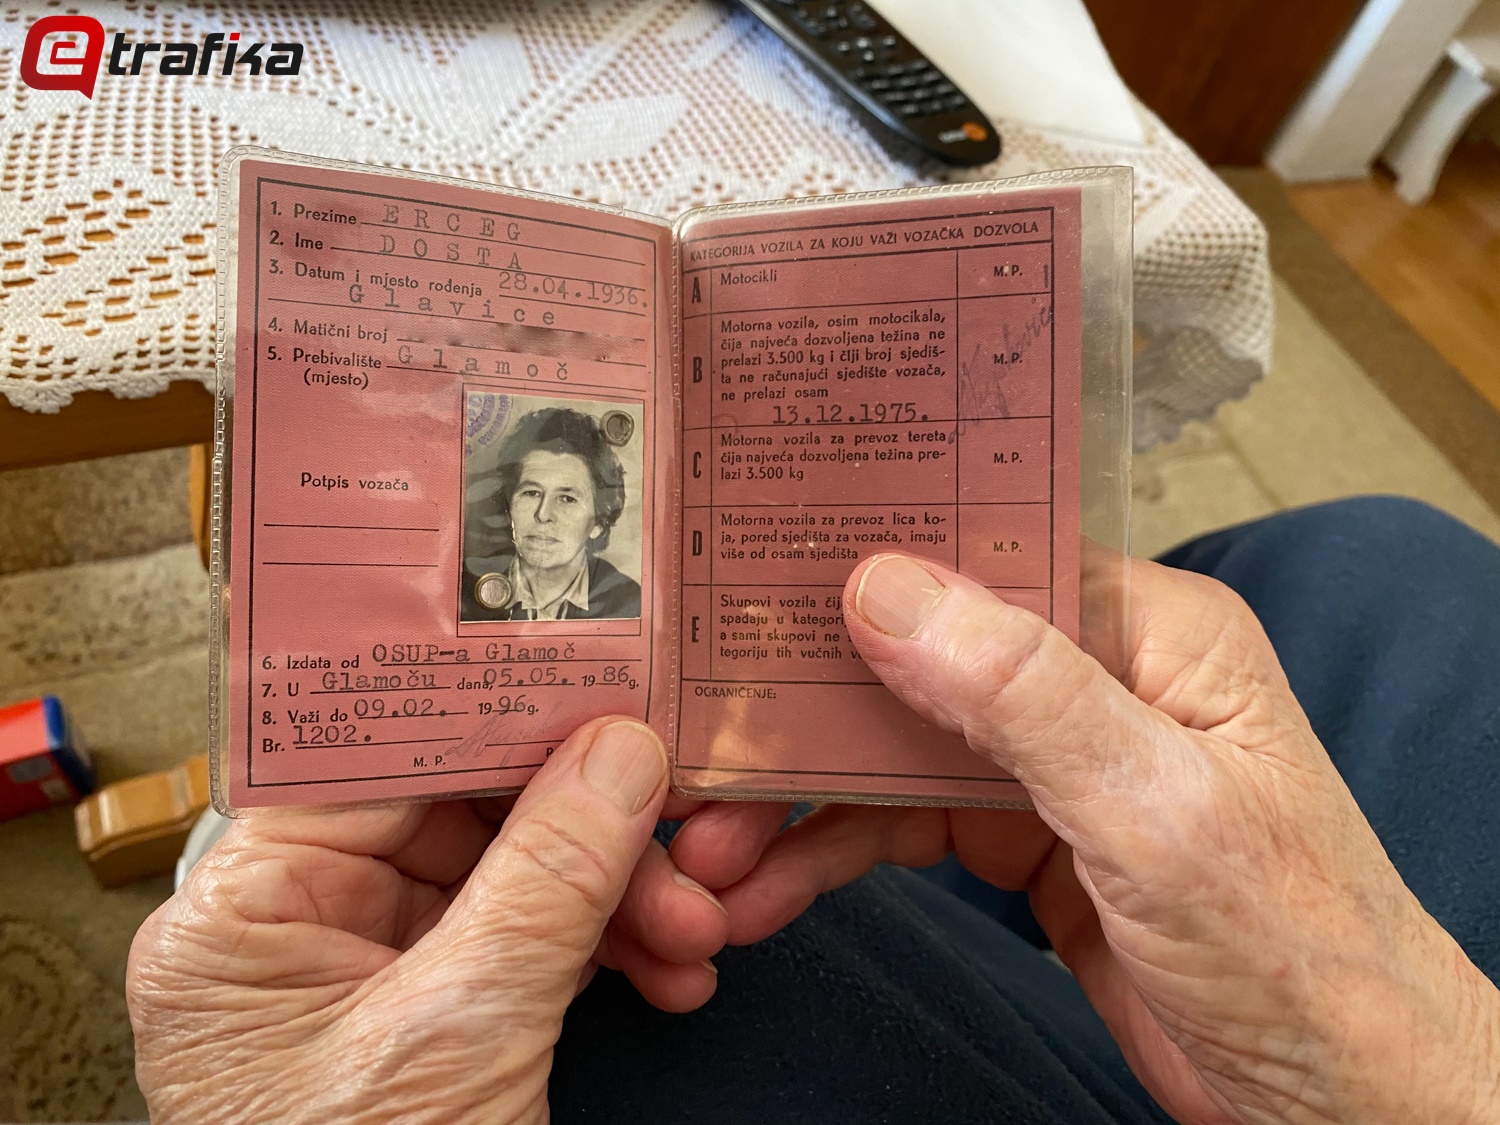 etrafika
1. Prezime ERCEG
2. Ime DOSTA
3. Datum i mjesto rođenja 28.04.1936.
Glavice
4. Matični broj
5. Prebivalište Glamoč
(mjesto)
Potpis vozača
6. Izdata od OSUP-a Glamoč
7. U Glamoču dana 05.05. 1986g.
8. Važi do 09.02. 1996g.
Br. 1202.
M. P.
KATEGORIJA VOZILA ZA KOJU VAŽI VOZAČKA DOZVOLA
A Motocikli M. P.
B Motorna vozila, osim motocikala,
čija najveća dozvoljena težina ne
prelazi 3.500 kg i čiji broj sjediš-
ta ne računajući sjedište vozača,
ne prelazi osam
M. P.
13.12.1975.
C Motorna vozila za prevoz tereta
čija najveća dozvoljena težina pre-
lazi 3.500 kg
M. P.
D Motorna vozila za prevoz lica ko-
ja, pored sjedišta za vozača, imaju
više od osam sjedišta
M. P.
E Skupovi vozila čij
spadaju u kategori
a sami skupovi ne
tegoriju tih vučnih
OGRANIČENJE: